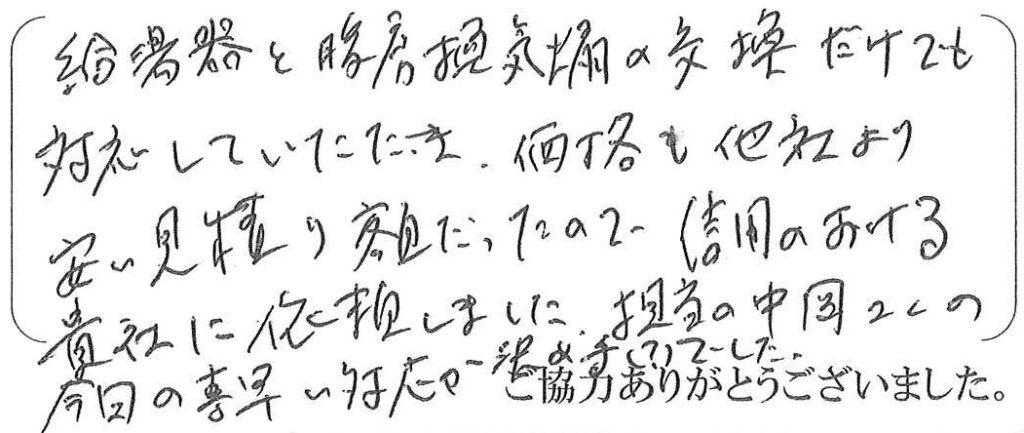 給湯器と暖房換気扇の交換だけでも
対応していただき、価格も他社より
安い見積り額だったので信用のおける
貴社に依頼しました。担当の中岡さんの
今回の素早い対応が一決め手
でした。
ご協力ありがとうございました。